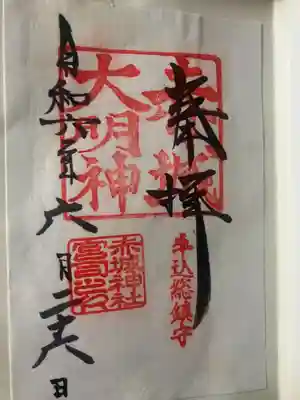 奉拝
赤城
大明神
牛込総鎮守
赤城神社
宮司之印
令和六年六月二十八日